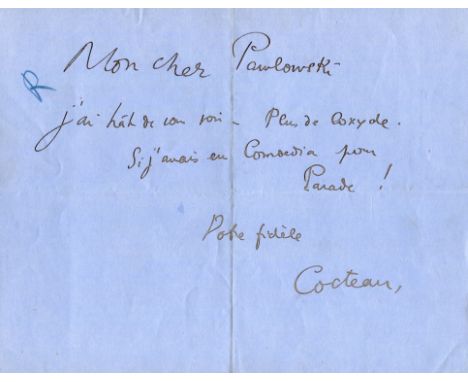 Mon cher Pawlowski
R
j'ai hâte de vous voir – Plus de Coxyde.
Si j'avais eu Comoedia pour
Parade !
Votre fidèle
Cocteau,